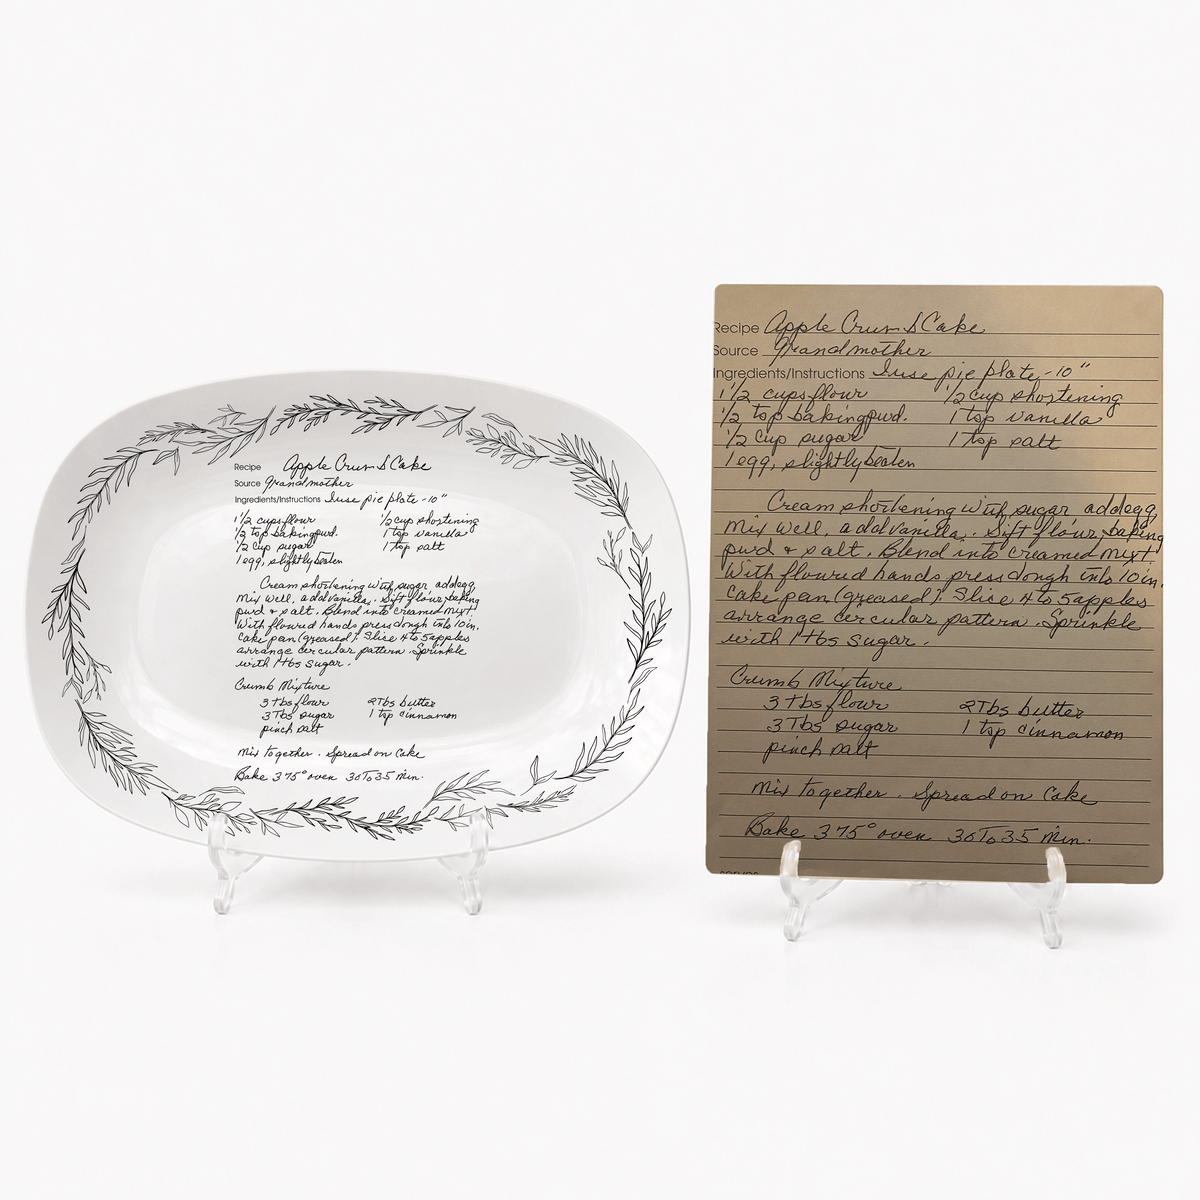 Recipe Apple Crumb Cake
Source Grandmother
Ingredients/Instructions I use pie plate - 10"
1 1/2 cups flour 1/2 cup shortening
1/2 tsp baking pwd. 1 tsp vanilla
1/2 cup sugar 1 tsp salt
1 egg, slightly beaten
Cream shortening with sugar add egg
Mix well, add vanilla. Sift flour, baking
pwd + salt. Blend into creamed mixt
With floured hands press dough into 10 in.
cake pan (greased). Slice 4 to 5 apples
arrange circular pattern. Sprinkle
with 1 tbs sugar.
Crumb Mixture
3 Tbs flour 2 Tbs butter
3 Tbs sugar 1 tsp cinnamon
pinch salt
Mix together. Spread on Cake
Bake 375° oven 30 To 35 Min.
Recipe Apple Crumb Cake
Source Grandmother
Ingredients/Instructions I use pie plate - 10"
1 1/2 cups flour 1/2 cup shortening
1/2 tsp baking pwd. 1 tsp vanilla
1/2 cup sugar 1 tsp salt
1 egg, slightly beaten
Cream shortening with sugar add egg
Mix well, add vanilla. Sift flour, baking
pwd + salt. Blend into creamed mixt
With floured hands press dough into 10 in.
cake pan (greased). Slice 4 to 5 apples
arrange circular pattern. Sprinkle
with 1 tbs sugar.
Crumb Mixture
3 Tbs flour 2 Tbs butter
3 Tbs sugar 1 tsp cinnamon
pinch salt
Mix together. Spread on Cake
Bake 375° oven 30 To 35 Min.